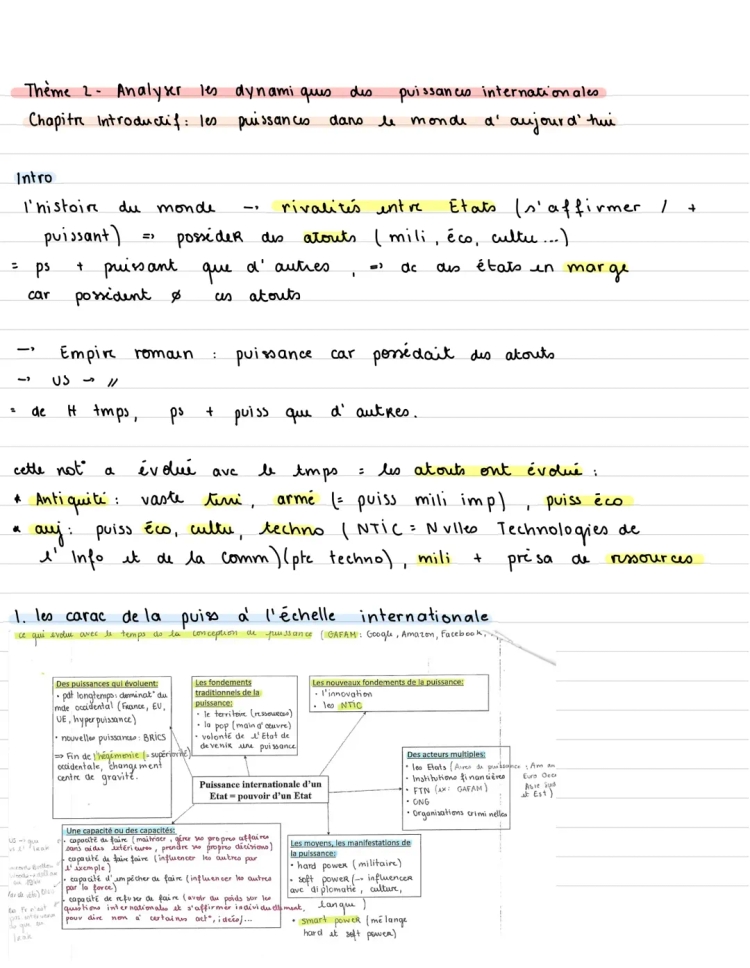 Thème 2 - Analyser les dynamiques des puissances internationales
Chapitre Introductif : les puissances dans le monde d'aujourd'hui
Intro
l'histoire du monde → rivalités entre Etats (s'affirmer / +
puissant) => posséder des atouts (mili, éco, cultu...)
= ps + puissant que d'autres, => dc des états en marge
car possèdent ∅ ces atouts
→ Empire romain : puissance car possédait des atouts
→ US → //
= de tmps, ps + puiss que d'autres.
cette not° a évolué avc le tmps = les atouts ont évolué :
* Antiquité : vaste terri, armé (= puiss mili imp), puiss éco
* auj : puiss éco, cultu, techno (NTIC = Nvlles Technologies de
l'Info et de la Comm) (pte techno), mili + présa de ressources
1. les carac de la puiss à l'échelle internationale
ce qui évolue avec le temps de la conception de puissance (GAFAM : Google, Amazon, Facebook,
Des puissances qui évoluent:
• pdt longtemps : dominat° du
mde occidental (France, EU,
UE, hyperpuissance)
• nouvelles puissances : BRICS
=> Fin de l'hégémonie (= supériorité)
occidentale, changement
centre de gravité.
Les fondements
traditionnels de la
puissance:
• le territoire (ressources)
• la pop (main d'œuvre)
• volonté de l'Etat de
devenir une puissance
Les nouveaux fondements de la puissance:
• l'innovation
• les NTIC
Puissance internationale d'un
Etat = pouvoir d'un Etat
Des acteurs multiples:
• les Etats (Aires de puissance : Am
• Institutions financières Euro Occ
• FTN (ex : GAFAM) Asie
• ONG et Est)
• Organisations criminelles
Une capacité ou des capacités:
• capacité de faire (maîtriser, gérer ses propres affaires
sans aides extérieures, prendre ses propres décisions)
• capacité de faire faire (influencer les autres par
l'exemple)
• capacité d'empêcher de faire (influencer les autres
par la force)
• capacité de refuser de faire (avoir du poids sur les
questions internationales et s'affirmer individuellement,
pour dire non à certains act°, idées)...
Les moyens, les manifestations de
la puissance:
• hard power (militaire)
• soft power (→ influencer
avc diplomatie, culture,
langue)
• smart power (mélange
hard et soft power)